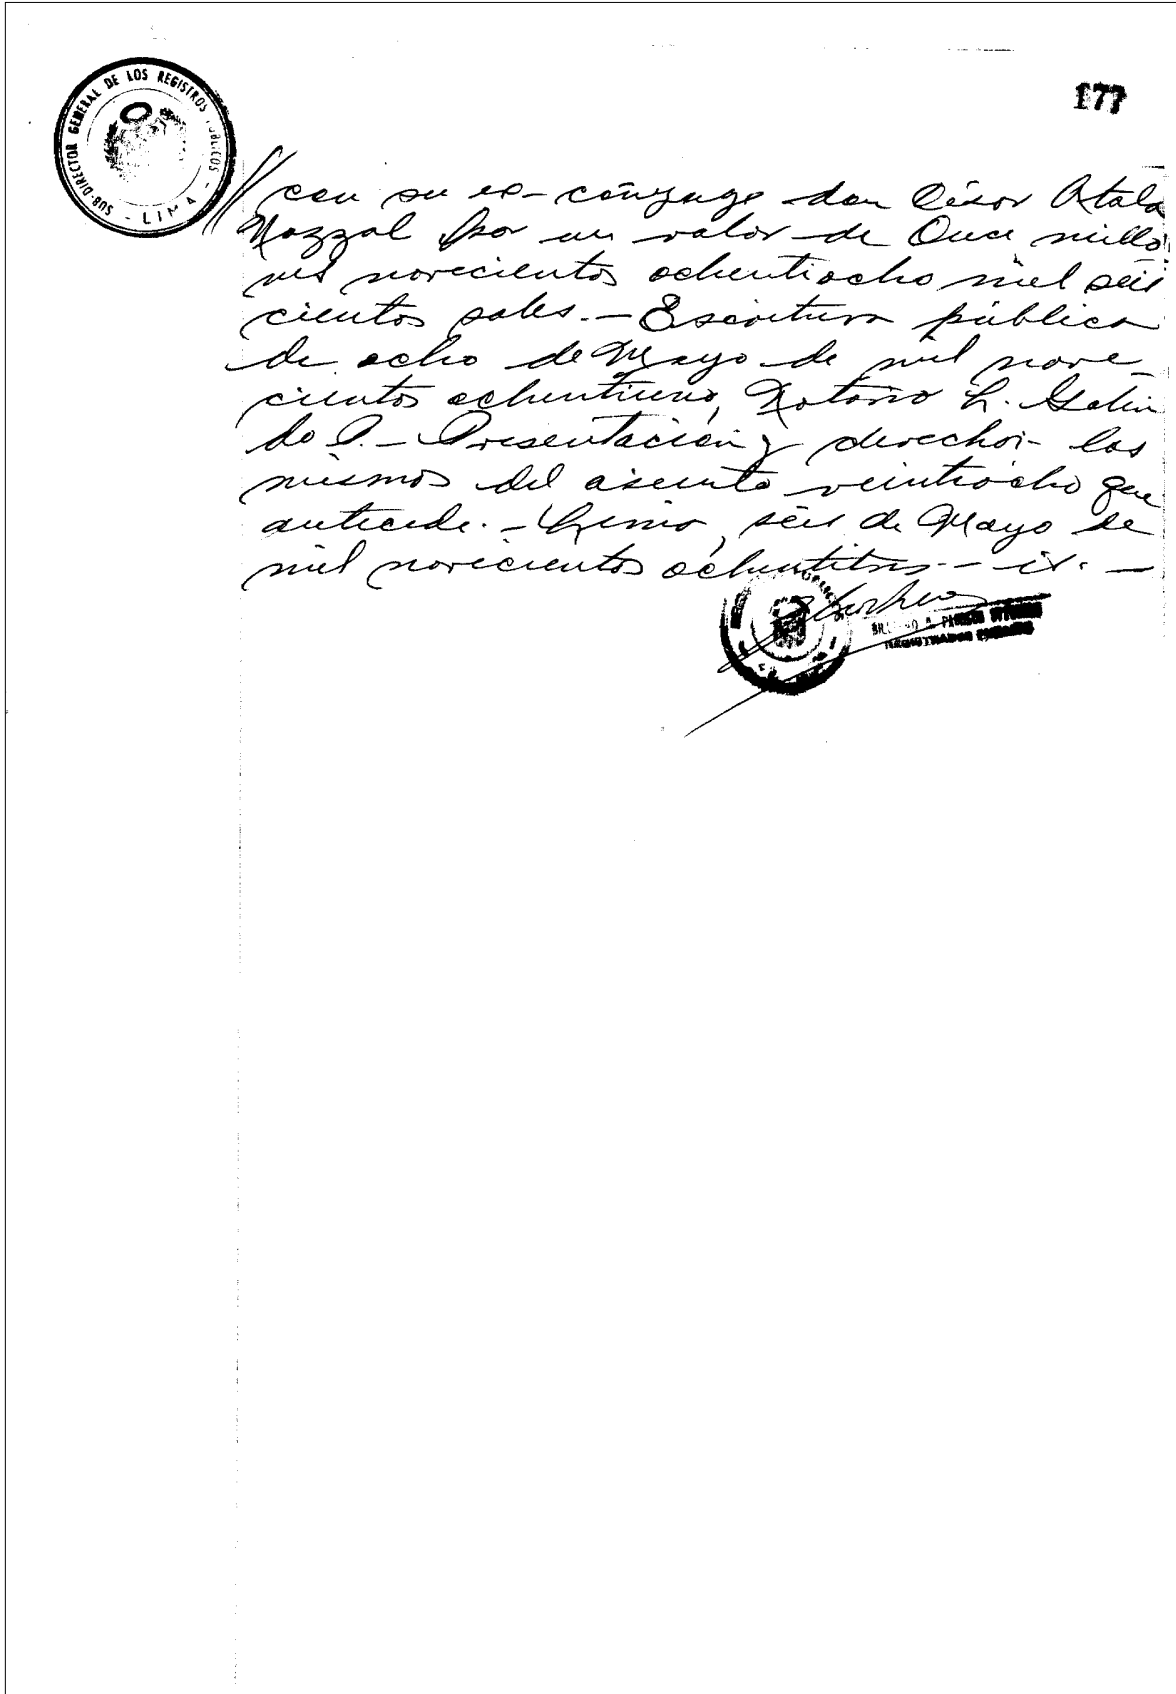 177
SUB-DIRECTOR GENERAL DE LOS REGISTROS PUBLICOS - LIMA
// con su ex-cónyuge don César Atala
Nazzal por un valor de Once millo
nes novecientos ochentiocho mil seis
cientos soles.- Escritura pública
de ocho de Mayo de mil nove-
cientos ochentiuno, Notario G. Galin
do P.- Presentación y derechos los
mismos del asiento veintiocho que
antecede.- Lima, seis de Mayo de
mil novecientos ochentitres.- -
REGISTRADOR PUBLICO